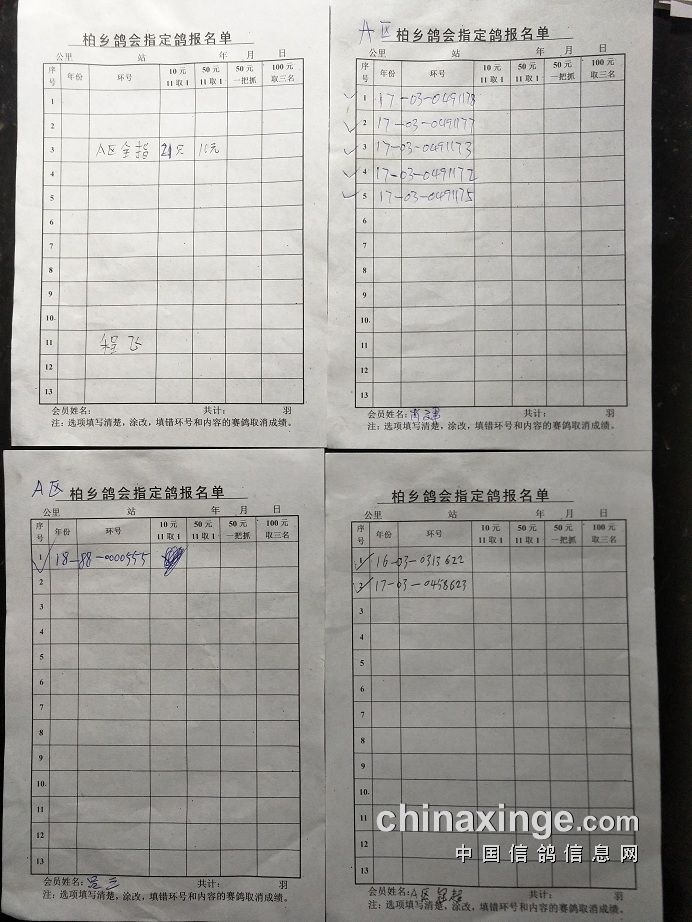 柏乡鸽会指定鸽报名单
公里 站 年 月 日
序号 年份 环号 10元 11取1 50元 11取1 50元 一把抓 100元 取三名
1
2
3 A区全指 21只 10元
4
5
6
7
8
9
10.
11 程飞
12
13
会员姓名: 共计: 羽
注: 选项填写清楚,涂改,填错环号和内容的赛鸽取消成绩。
A区 柏乡鸽会指定鸽报名单
公里 站 年 月 日
序号 年份 环号 10元 11取1 50元 11取1 50元 一把抓 100元 取三名
1 17-03-0491178
2 17-03-0491177
3 17-03-0491173
4 17-03-0491172
5 17-03-0491175
6
7
8
9
10.
11
12
13
会员姓名: 共计: 羽
注: 选项填写清楚,涂改,填错环号和内容的赛鸽取消成绩。
A区 柏乡鸽会指定鸽报名单
公里 站 年 月 日
序号 年份 环号 10元 11取1 50元 11取1 50元 一把抓 100元 取三名
1 18-88-0000555
2
3
4
5
6
7
8
9
10
11
12
13
会员姓名: 共计: 羽
注: 选项填写清楚,涂改,填错环号和内容的赛鸽取消成绩。
柏乡鸽会指定鸽报名单
公里 站 年 月 日
序号 年份 环号 10元 11取1 50元 11取1 50元 一把抓 100元 取三名
1 16-03-0313622
2 17-03-0458623
3
4
5
6
7
8
9
10
11
12
13
会员姓名: A区 共计: 羽
注: 选项填写清楚,涂改,填错环号和内容的赛鸽取消成绩。
chinaxinge.com
中国信鸽信息网